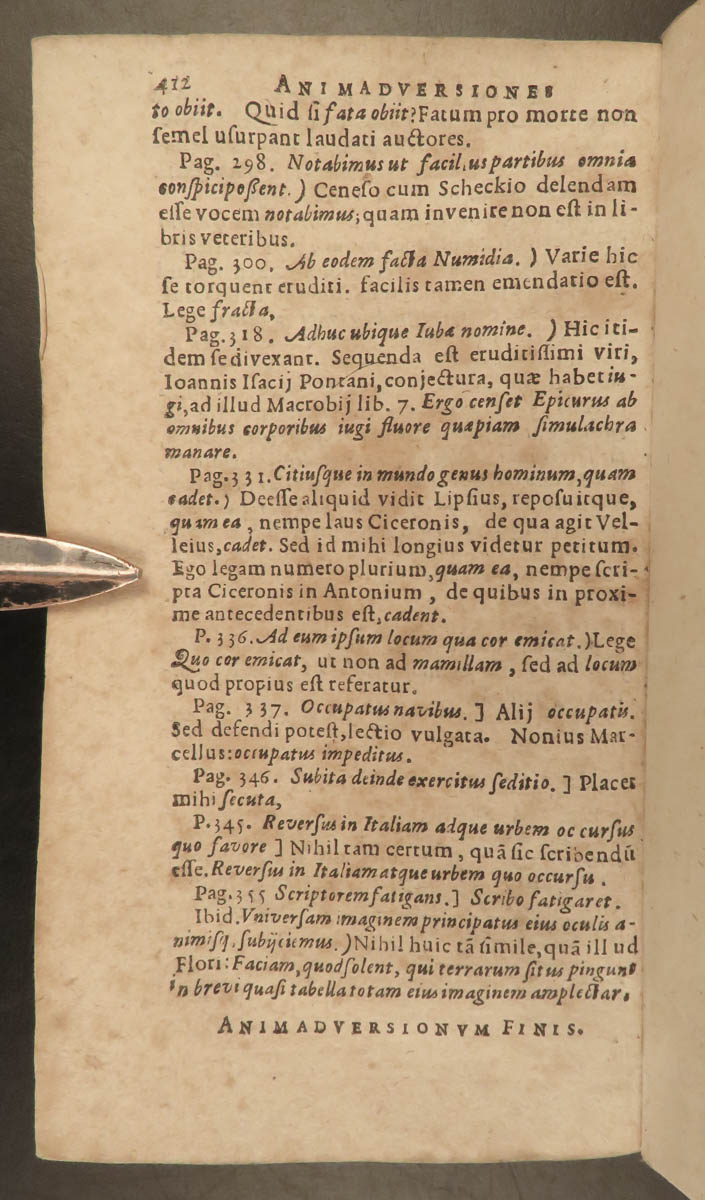 412 ANIMADVERSIONES
to obiit. Quid ſi fata obiit? Fatum pro morte non
ſemel uſurpant laudati auctores.
Pag. 298. Notabimus ut facilius partibus omnia
conſpici poſſent.) Cenſeo cum Scheckio delendam
eſſe vocem notabimus; quam invenire non eſt in li-
bris veteribus.
Pag. 300. Ab eodem facta Numidia. ) Varie hic
ſe torquent eruditi. facilis tamen emendatio eſt.
Lege fracta,
Pag. 318. Adhuc ubique Iubæ nomine. ) Hic iti-
dem ſe divexant. Sequenda eſt eruditiſſimi viri,
Ioannis Iſacij Pontani, conjectura, quæ habet iu-
gi, ad illud Macrobij lib. 7. Ergo cenſet Epicurus ab
omnibus corporibus iugi fluore quæpiam ſimulachra
manare.
Pag. 331. Citiuſque in mundo genus hominum, quam
cadet.) Deeſſe aliquid vidit Lipſius, repoſuitque,
quam ea, nempe laus Ciceronis, de qua agit Vel-
leius, cadet. Sed id mihi longius videtur petitum.
Ego legam numero plurium, quam ea, nempe ſcri-
pta Ciceronis in Antonium, de quibus in proxi-
me antecedentibus eſt, cadent.
P. 336. Ad eum ipſum locum qua cor emicat.) Lege
Quo cor emicat, ut non ad mamillam, ſed ad locum
quod propius eſt referatur.
Pag. 337. Occupatus navibus. ] Alij occupatis.
Sed defendi poteſt, lectio vulgata. Nonius Mar-
cellus: occupatus impeditus.
Pag. 346. Subita deinde exercitus ſeditio. ] Placet
mihi ſecuta,
P. 345. Reverſus in Italiam adque urbem oc curſus
quo favore ] Nihil tam certum, quā ſic ſcribendū
eſſe. Reverſus in Italiam atque urbem quo occurſu.
Pag. 355 Scriptorem fatigans. ] Scribo fatigaret.
Ibid. Vniverſam imaginem principatus eius oculis a-
nimiſq. ſubijciemus. ) Nihil huic tā ſimile, quā ill ud
Flori: Faciam, quod ſolent, qui terrarum ſitus pingunt
in brevi quaſi tabella totam eius imaginem amplectar.
ANIMADVERSIONVM FINIS.